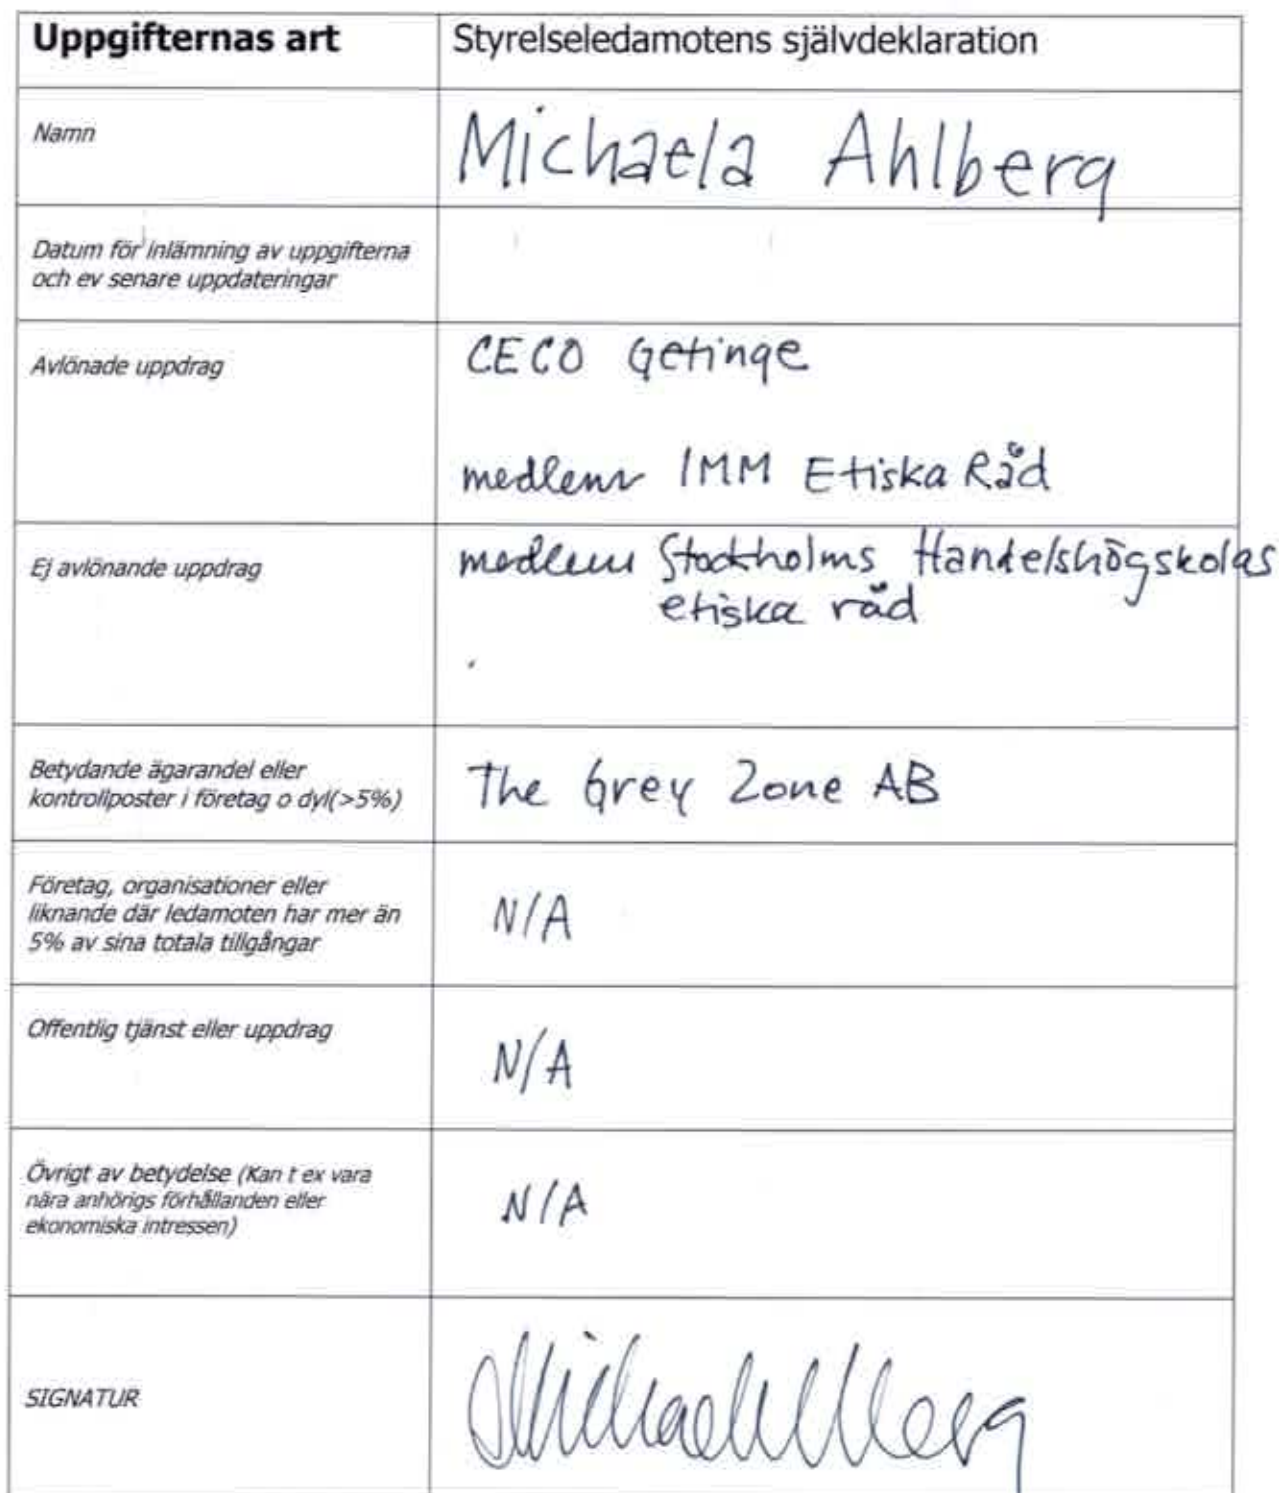 Uppgifternas art
Styrelseledamotens självdeklaration
Namn
Michaela Ahlberg
Datum för inlämning av uppgifterna
och ev senare uppdateringar
Avlönade uppdrag
CECO Getinge
medlem IMM Etiska Råd
Ej avlönande uppdrag
medlem Stockholms Handelshögskolas
etiska råd
Betydande ägarandel eller
kontrollposter i företag o dyl(>5%)
The Grey Zone AB
Företag, organisationer eller
liknande där ledamoten har mer än
5% av sina totala tillgångar
N/A
Offentlig tjänst eller uppdrag
N/A
Övrigt av betydelse (Kan t ex vara
nära anhörigs förhållanden eller
ekonomiska intressen)
N/A
SIGNATUR
Michaela Ahlberg